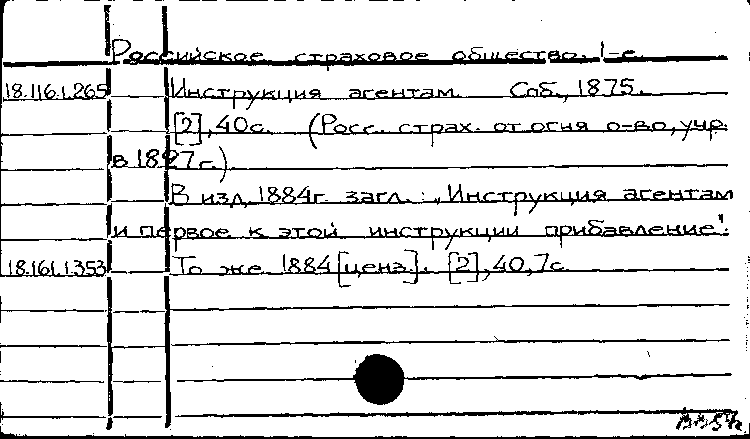 Российское страховое общество, 1-е.
18.116.1.265 Инструкция агентам. Спб., 1875.
[2], 40с. (Росс. страх. от огня о-во, учр.
в 1827г.)
В изд. 1884г. загл.: „Инструкция агентам
и первое к этой инструкции прибавление".
18.161.1.353 То же 1884 [ценз.]. [2], 40, 7с